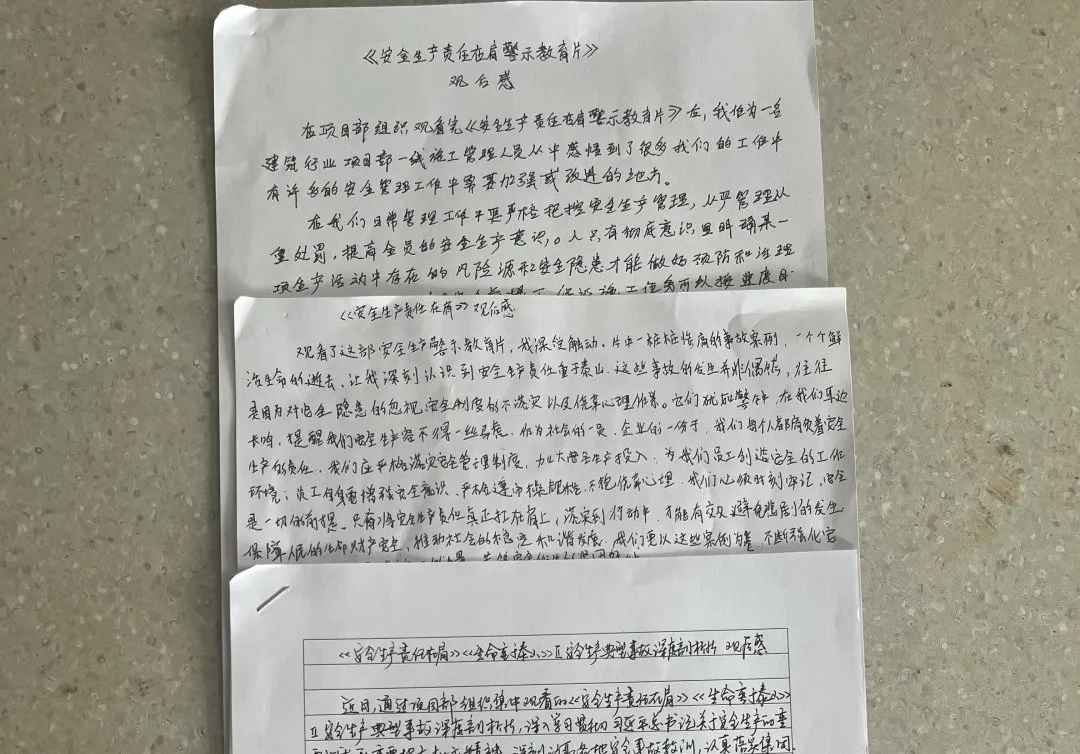 《安全生产责任在肩警示教育片》
观后感
在项目部组织观看完《安全生产责任在肩警示教育片》后，我作为一名
建筑行业项目部一线施工管理人员从中感悟到了很多我们的工作中
有许多的安全管理工作中需要加强或改进的地方。
在我们日常管理工作中要严格把控安全生产管理，从严管理从
重处罚，提高全员的安全生产意识，。人只有彻底意识里明确某一
项生产活动中存在的风险源和安全隐患才能做好预防和治理
《《安全生产责任在肩》》观后感
观看了这部安全生产警示教育片，我深受触动。片中一桩桩惨痛的事故案例，一个个鲜
活生命的逝去，让我深刻认识到安全生产责任重于泰山。这些事故的发生并非偶然，往往
是因为对安全隐患的忽视，安全制度的不落实以及侥幸心理作祟。它们犹如警钟，在我们耳边
长鸣，提醒我们安全生产容不得一丝马虎。作为社会的一员，企业的一份子，我们每个人都肩负着安全
生产的责任，我们应严格落实安全管理制度，加大安全生产投入，为我们员工创造安全的工作
环境；员工自身要增强安全意识，严格遵守操作规程，不抱侥幸心理。我们必须时刻牢记，安全
是一切的前提。只有将安全生产责任真正扛在肩上，落实到行动中，才能有效避免悲剧的发生
保障人民的生命财产安全，推动社会的稳定和谐发展。我们要以这些案例为鉴，不断强化安
《《安全生产责任在肩》》《《生命重于泰山》》及安全生产典型事故深度剖析片 观后感
近日，通过项目部组织集中观看的《《安全生产责任在肩》》《《生命重于泰山》》
及安全生产典型事故深度剖析片，深入学习贯彻习近平总书记关于安全生产的重